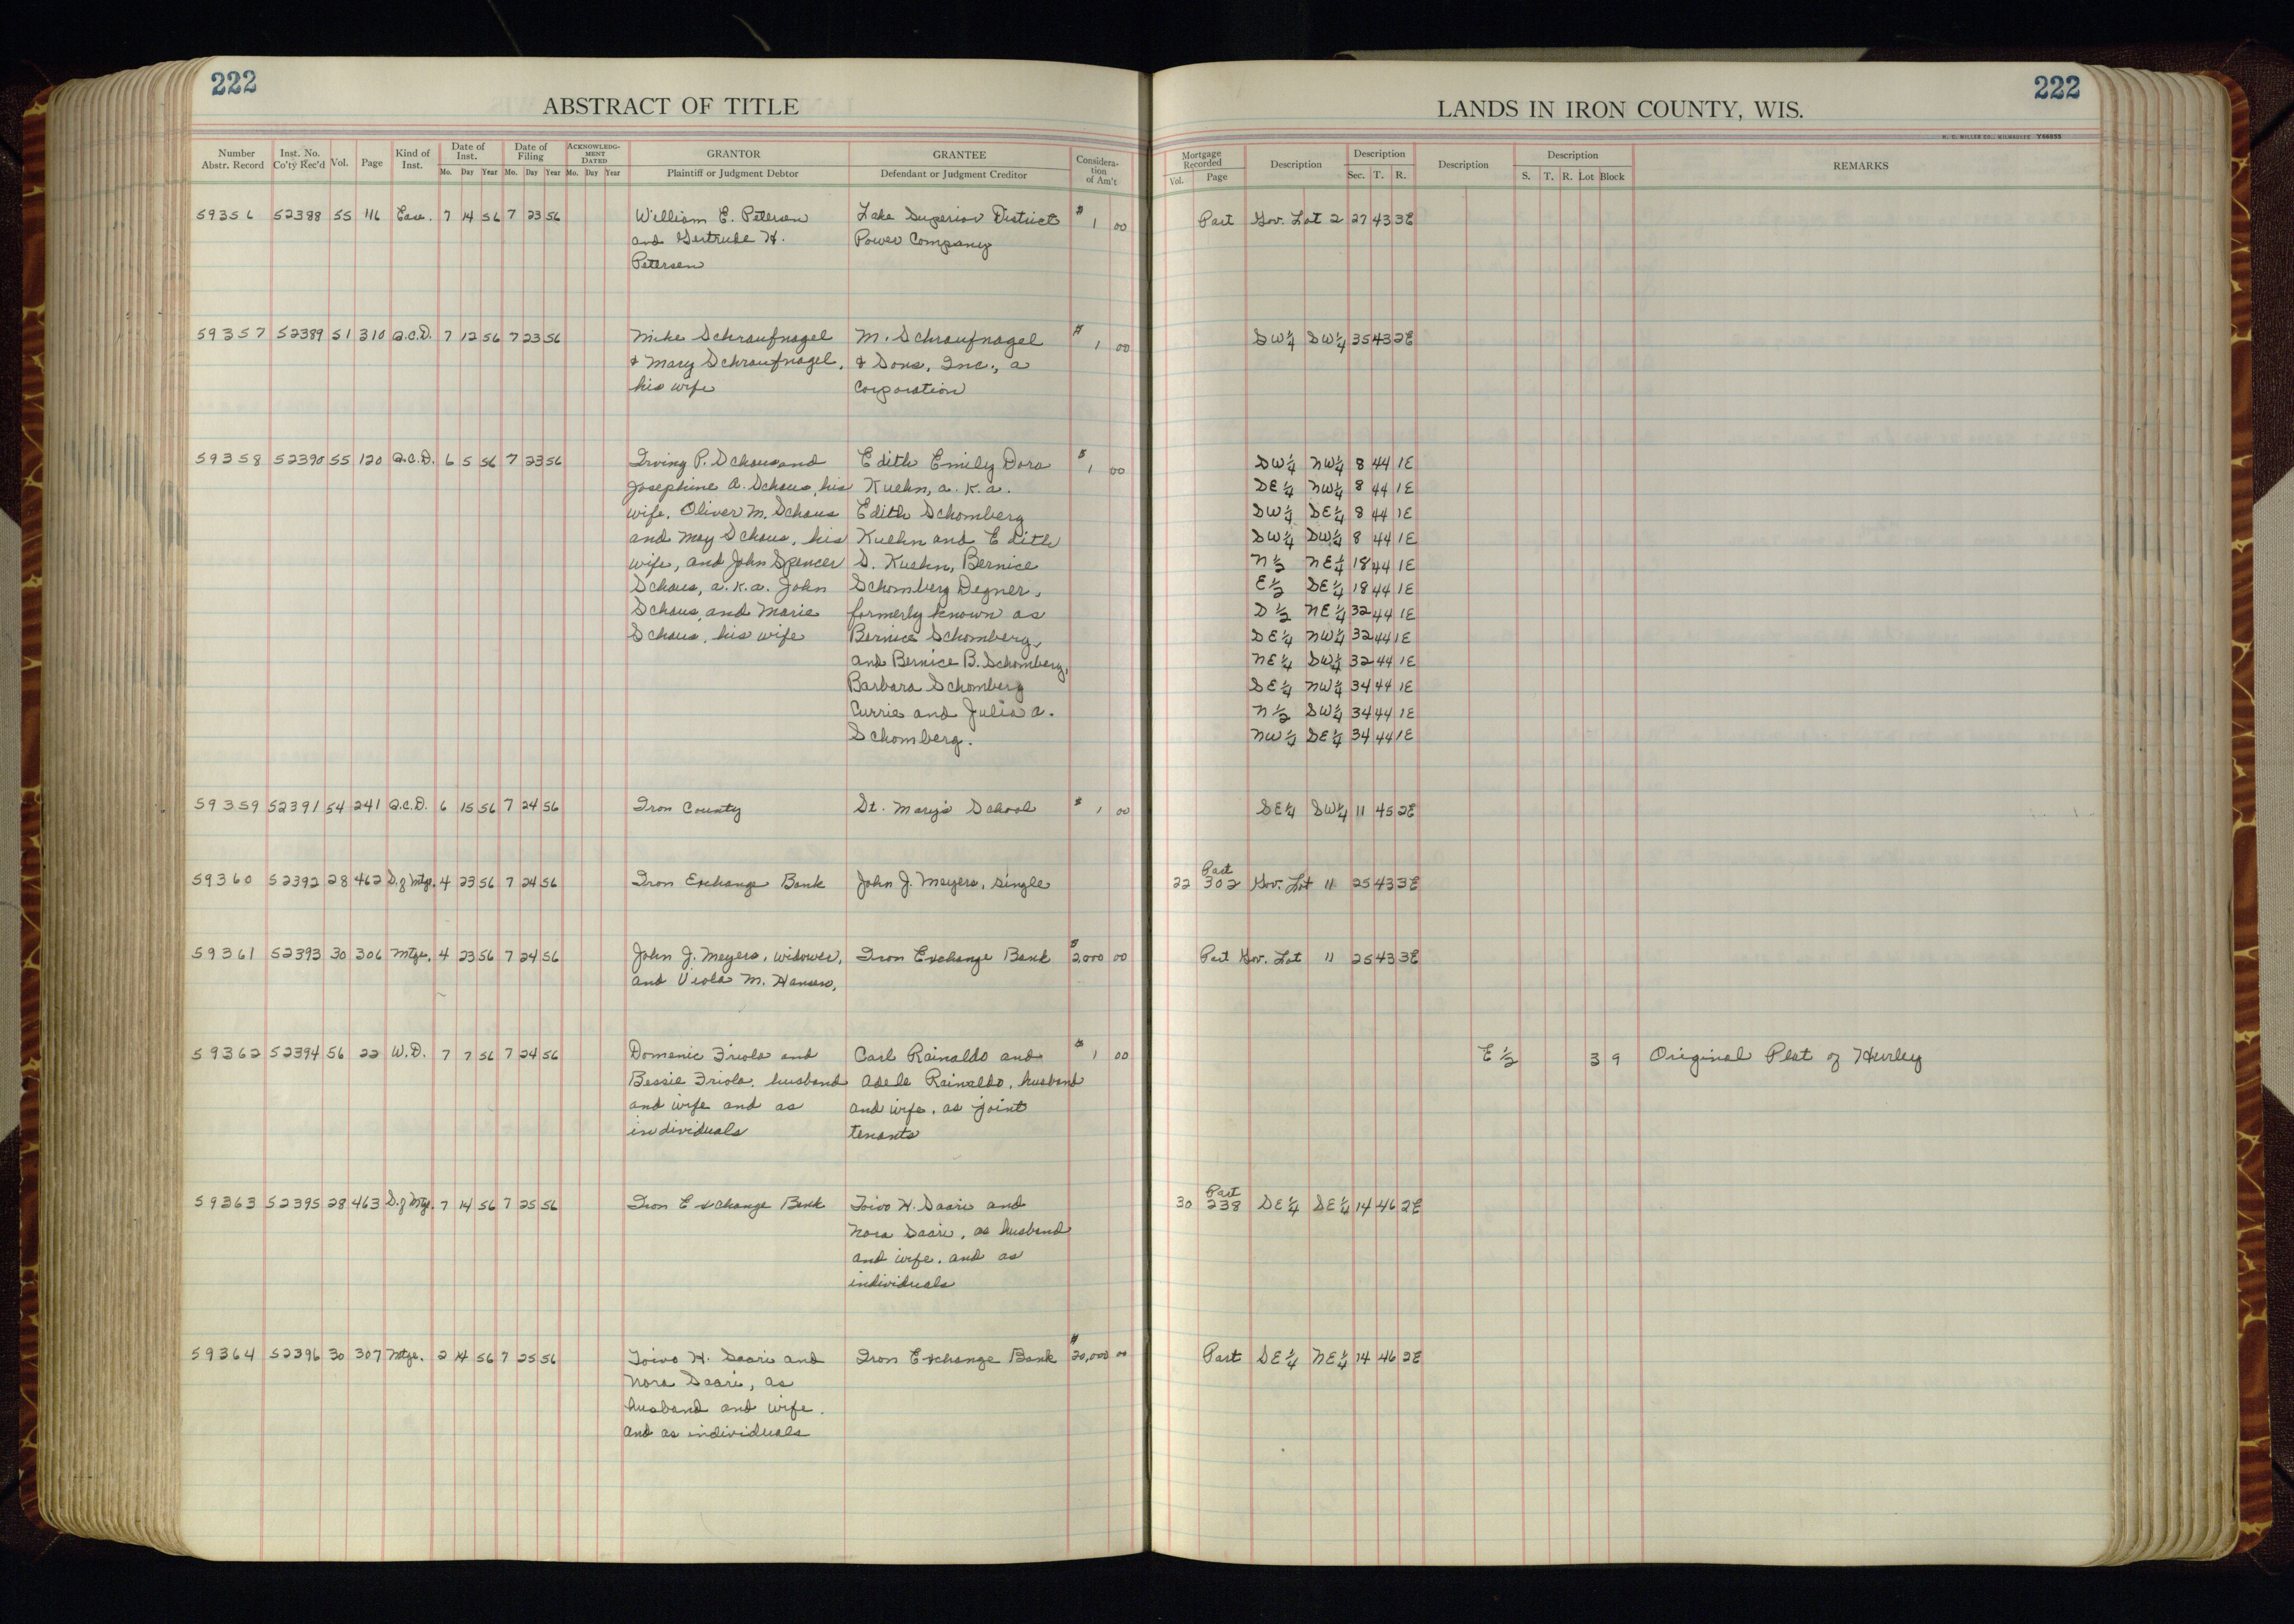 222
ABSTRACT OF TITLE
Number Abstr. Record | Inst. No. Co'ty Rec'd | Vol. | Page | Kind of Inst. | Date of Inst. Mo. Day Year | Date of Filing Mo. Day Year | ACKNOWLEDGMENT DATED Mo. Day Year | GRANTOR Plaintiff or Judgment Debtor | GRANTEE Defendant or Judgment Creditor | Consideration of Am't
59356 52388 55 116 Ease. 7 14 56 7 23 56 William E. Petersen Lake Superior District $1 00
and Gertrude H. Power Company
Petersen
59357 52389 51 310 Q.C.D. 7 12 56 7 23 56 Mike Schraufnagel M. Schraufnagel $1 00
& Mary Schraufnagel, & Sons, Inc., a
his wife Corporation
59358 52390 55 120 Q.C.D. 6 5 56 7 23 56 Irving P. Schaus and Edith Emily Dora $1 00
Josephine A. Schaus, his Kuehn, a.k.a.
wife, Oliver M. Schaus Edith Schomberg
and May Schaus, his Kuehn and Edith
wife, and John Spencer S. Kuehn, Bernice
Schaus, a.k.a. John Schomberg Degner,
Schaus, and Marie formerly known as
Schaus, his wife Bernice Schomberg,
and Bernice B. Schomberg,
Barbara Schomberg
Currie and Julia A.
Schomberg.
59359 52391 54 241 Q.C.D. 6 15 56 7 24 56 Iron County St. Mary's School $1 00
59360 52392 28 462 S. of Mtge. 4 23 56 7 24 56 Iron Exchange Bank John J. Meyers, single
59361 52393 30 306 Mtge. 4 23 56 7 24 56 John J. Meyers, widower, Iron Exchange Bank $2,000 00
and Viola M. Hansen,
59362 52394 56 22 W.D. 7 7 56 7 24 56 Domenic Friola and Carl Rainaldo and $1 00
Bessie Friola, husband Adele Rainaldo, husband
and wife and as and wife, as joint
individuals tenants
59363 52395 28 463 S. of Mtge. 7 14 56 7 25 56 Iron Exchange Bank Toivo H. Saari and
Nora Saari, as husband
and wife, and as
individuals
59364 52396 30 307 Mtge. 2 14 56 7 25 56 Toivo H. Saari and Iron Exchange Bank $20,000 00
Nora Saari, as
husband and wife,
and as individuals
222
LANDS IN IRON COUNTY, WIS.
H. C. MILLER CO., MILWAUKEE Y66855
Mortgage Recorded Vol. Page | Description | Description Sec. T. R. | Description | Description S. T. R. Lot Block | REMARKS
Part Gov. Lot 2 27 43 3E
SW¼ SW¼ 35 43 2E
SW¼ NW¼ 8 44 1E
SE¼ NW¼ 8 44 1E
SW¼ SE¼ 8 44 1E
SW¼ SW¼ 8 44 1E
N½ NE¼ 18 44 1E
E½ SE¼ 18 44 1E
S½ NE¼ 32 44 1E
SE¼ NW¼ 32 44 1E
NE¼ SW¼ 32 44 1E
SE¼ NW¼ 34 44 1E
N½ SW¼ 34 44 1E
NW¼ SE¼ 34 44 1E
SE¼ SW¼ 11 45 2E
Part
22 302 Gov. Lot 11 25 43 3E
Part Gov. Lot 11 25 43 3E
E½ 3 9 Original Plat of Hurley
Part
30 238 SE¼ SE¼ 14 46 2E
Part SE¼ NE¼ 14 46 2E